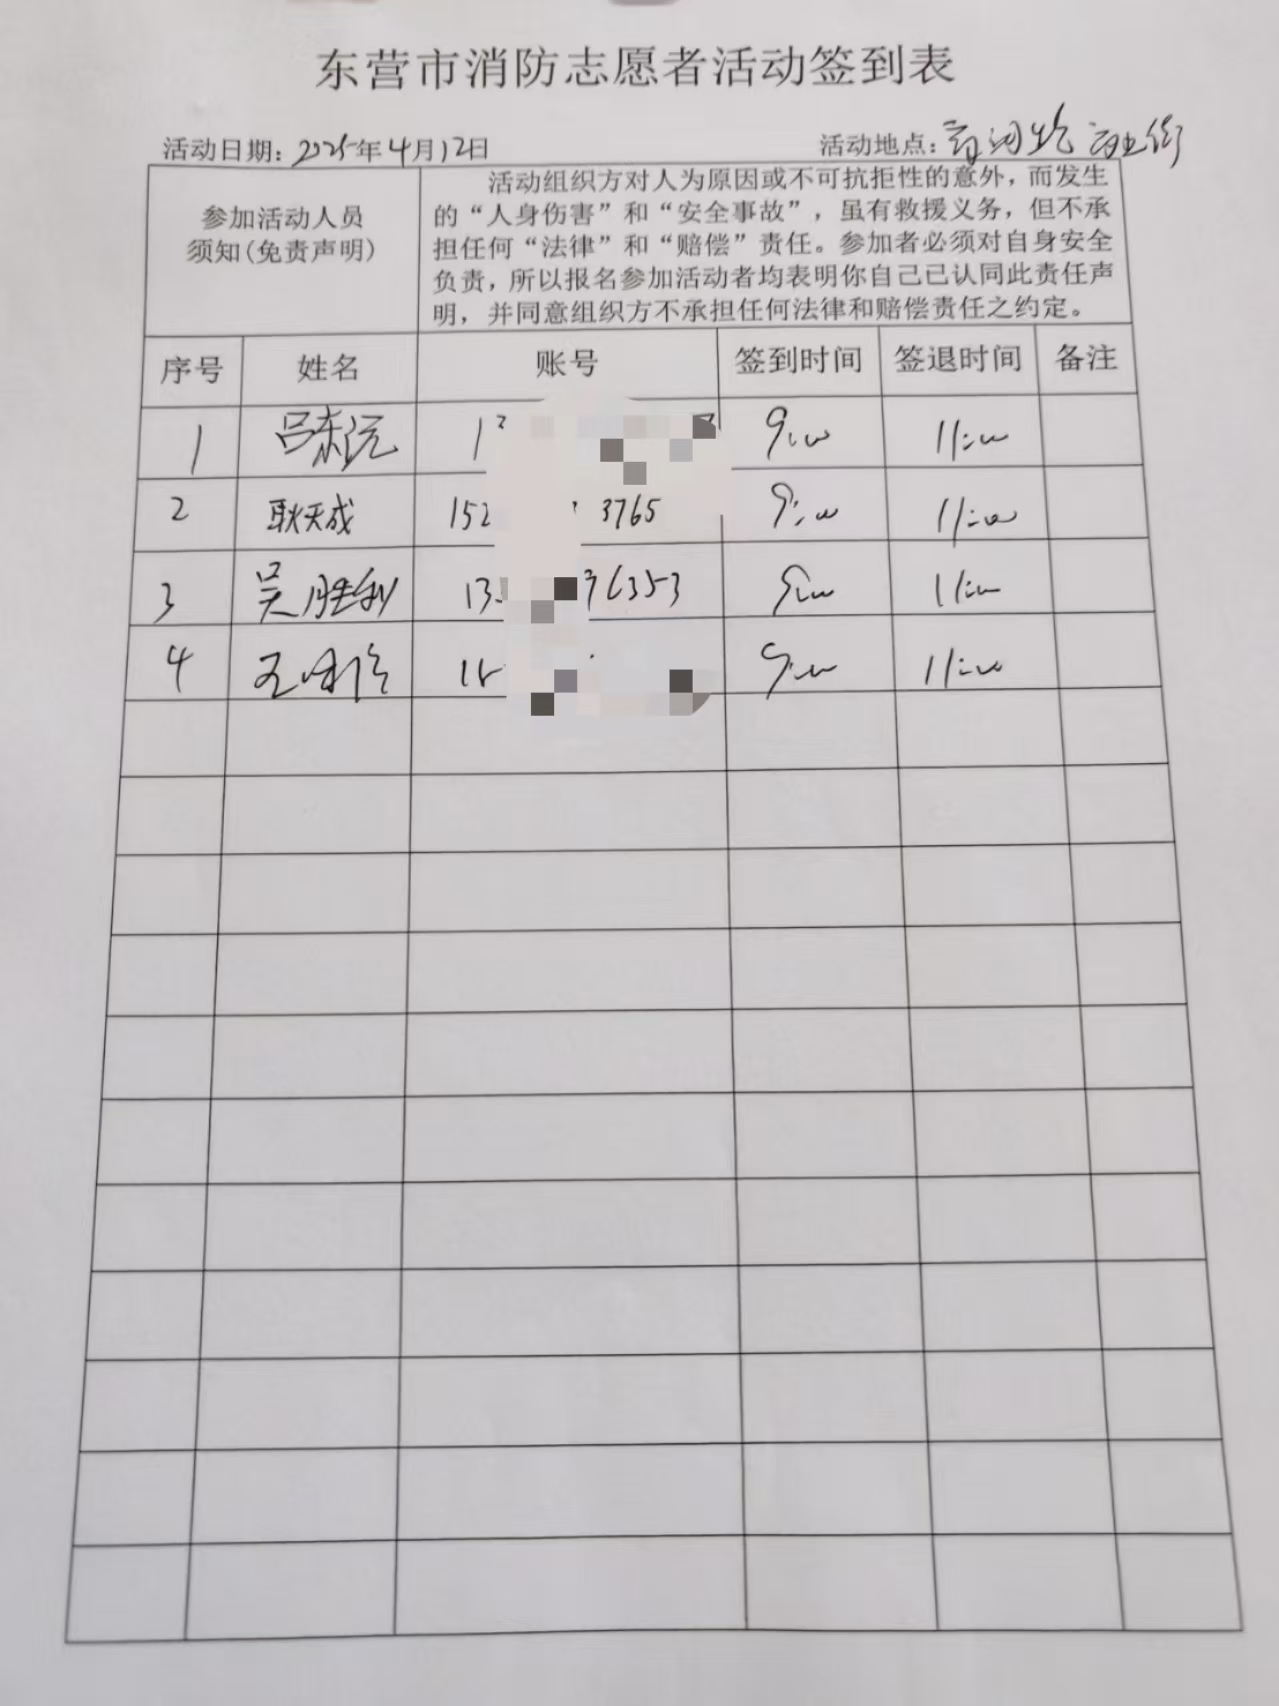 东营市消防志愿者活动签到表
活动日期：2025年4月12日 活动地点：商业街
参加活动人员
须知(免责声明)
活动组织方对人为原因或不可抗拒性的意外，而发生
的“人身伤害”和“安全事故”，虽有救援义务，但不承
担任何“法律”和“赔偿”责任。参加者必须对自身安全
负责，所以报名参加活动者均表明你自己已认同此责任声
明，并同意组织方不承担任何法律和赔偿责任之约定。
序号 姓名 账号 签到时间 签退时间 备注
1 吕东远 1 9:00 11:00
2 耿天成 152 3765 9:00 11:00
3 吴胜利 13 6353 9:00 11:00
4 9:00 11:00